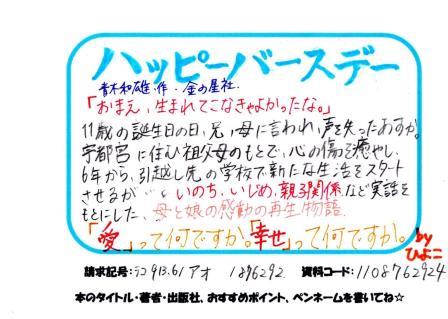 ハッピーバースデー
青木和雄・作 金の星社
「おまえ、生まれてこなきゃよかったな。」
11歳の誕生日の日、兄、母に言われ、声を失ったあすか。
宇都宮に住む祖父母のもとで、心の傷を癒やし、
6年から、引越し先の学校で新たな生活をスタート
させるが… いのち、いじめ、親子関係など実話を
もとにした、母と娘の感動の再生物語。
「愛」って何ですか。「幸せ」って何ですか。
by ひよこ
請求記号:ラコ 913.61 アオ 1896292 資料コード:1108762924
本のタイトル・著者・出版社、おすすめポイント、ペンネームを書いてね☆